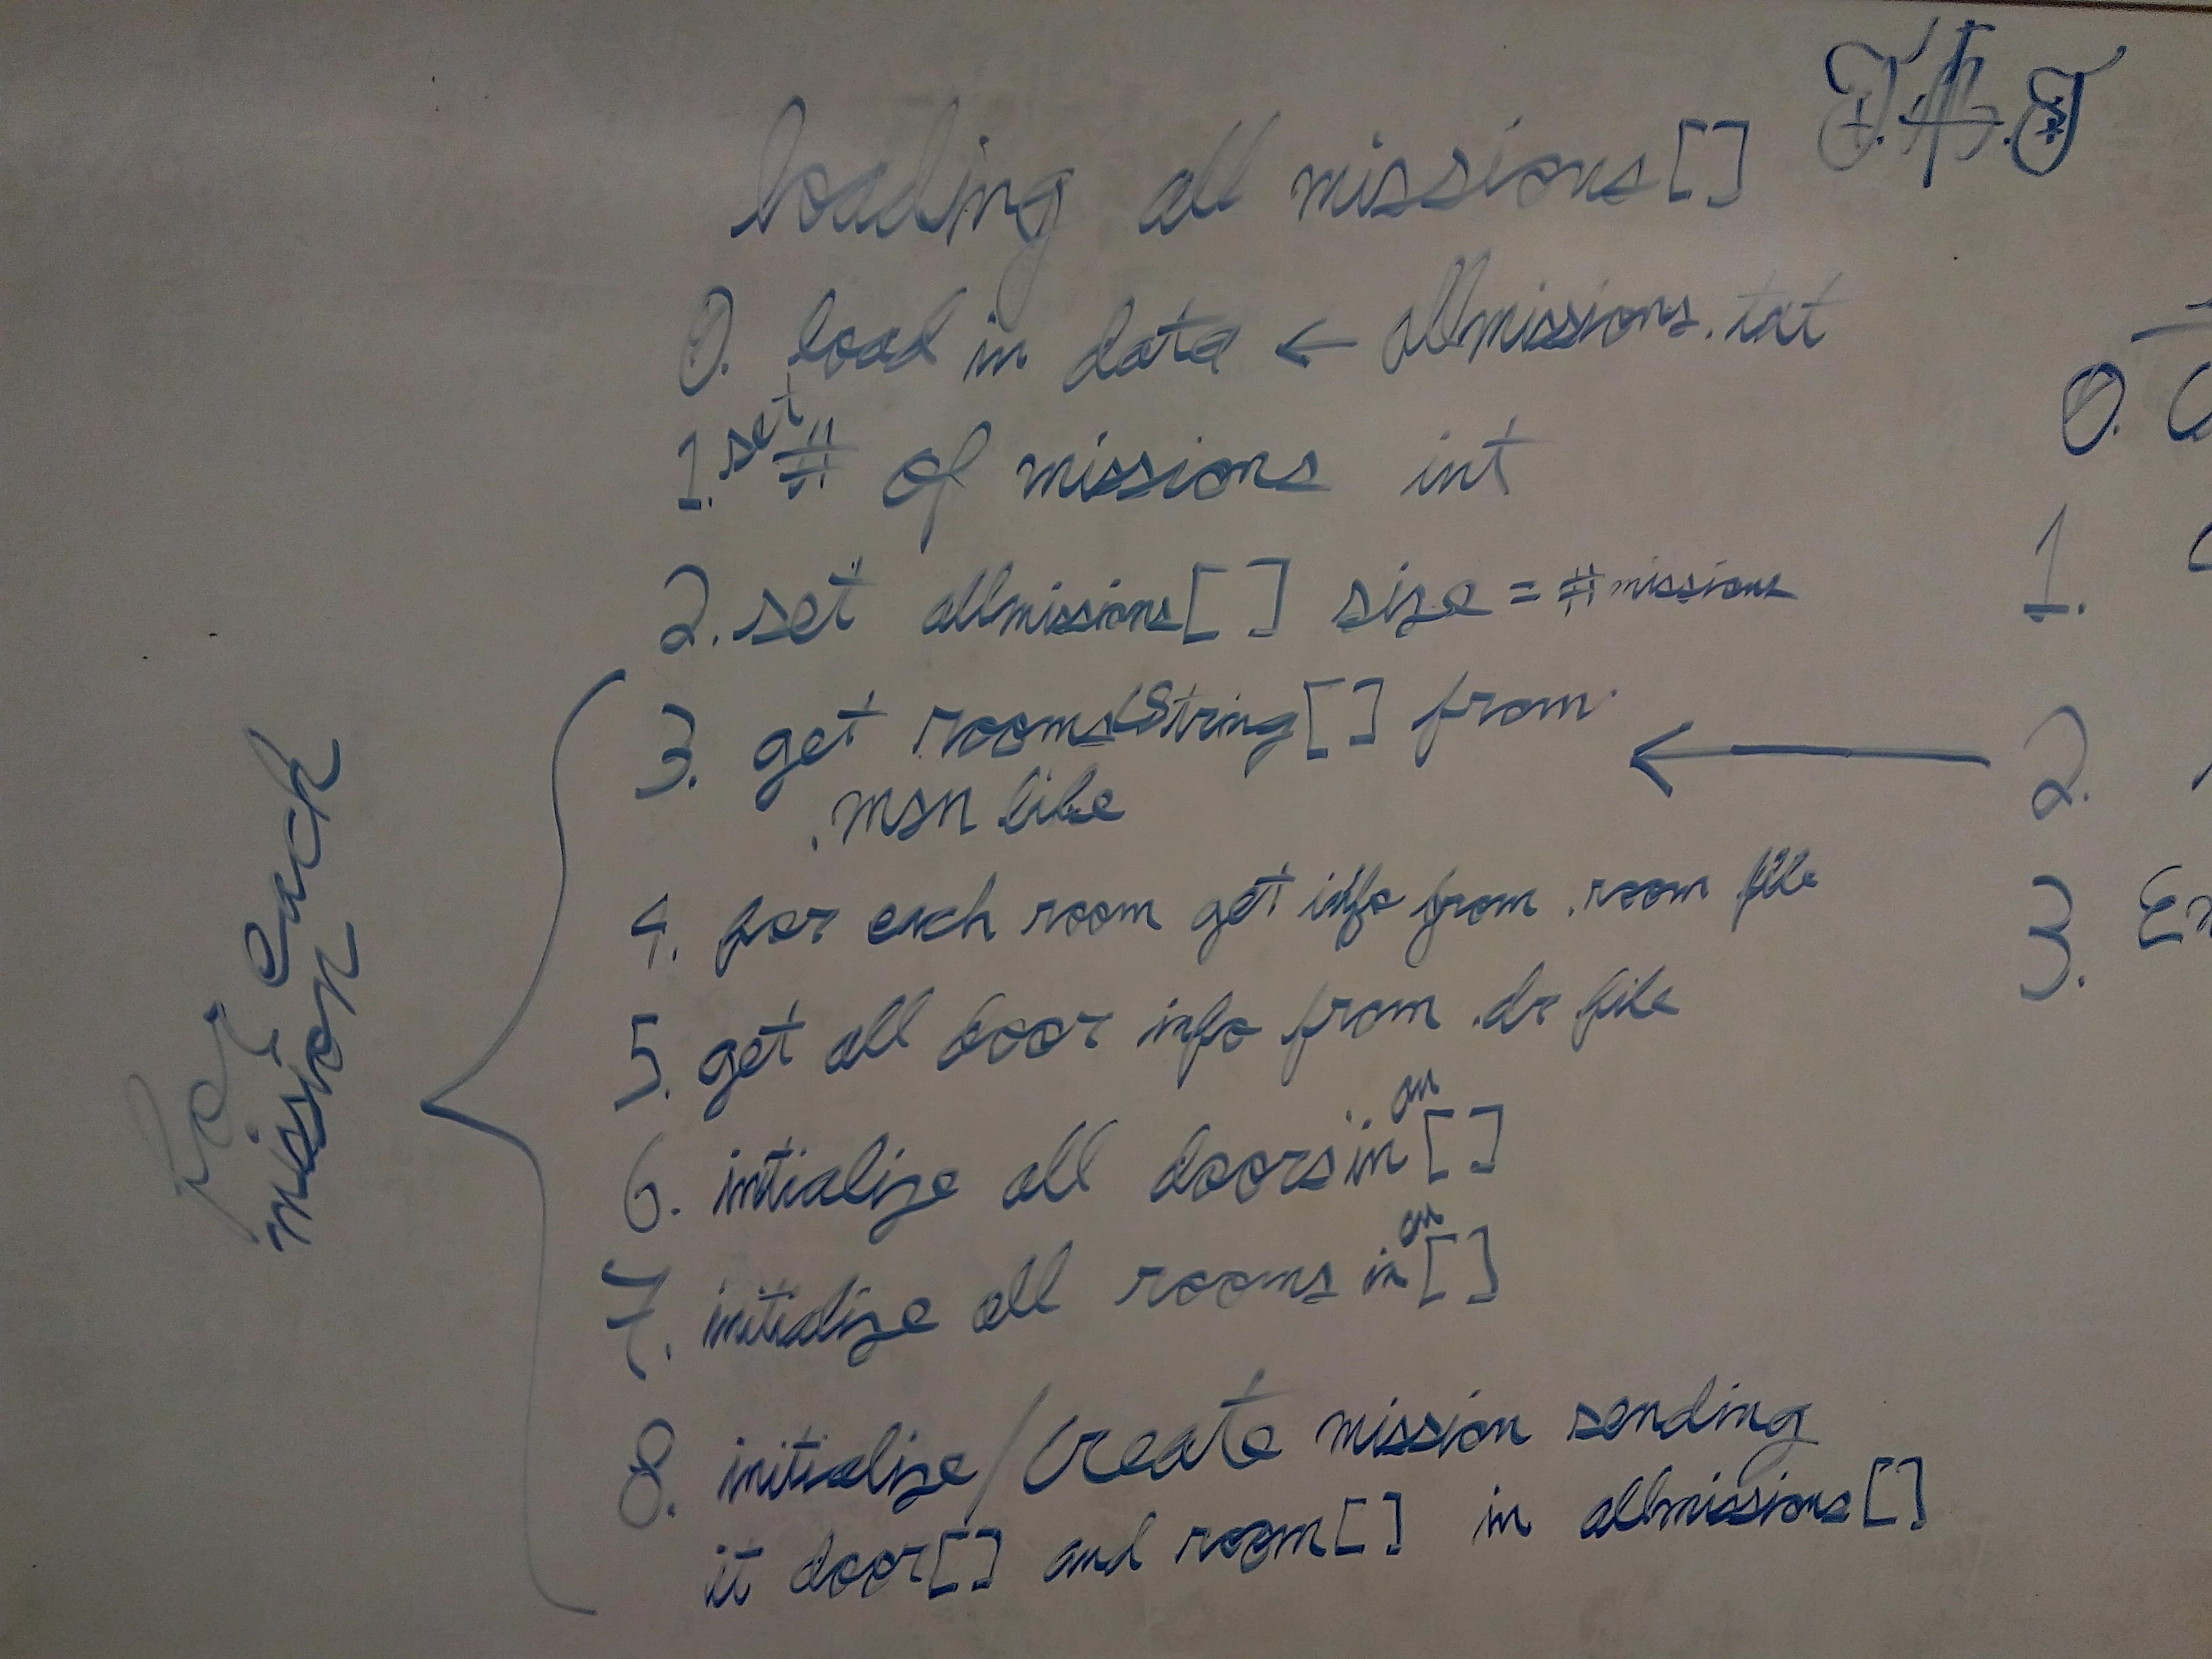 loading all missions[]
0. load in data ← allmissions.txt
1. set # of missions int
2. set allmissions[] size = #missions
3. get rooms(String[] from
.msn file
4. for each room get info from .room file
5. get all door info from .dr file
6. intialize all doors in an []
7. initialize all rooms in an []
8. initialize/create mission sending
it door[] and room[] in allmissions[]
For each
mission
0.
1.
2.
3.